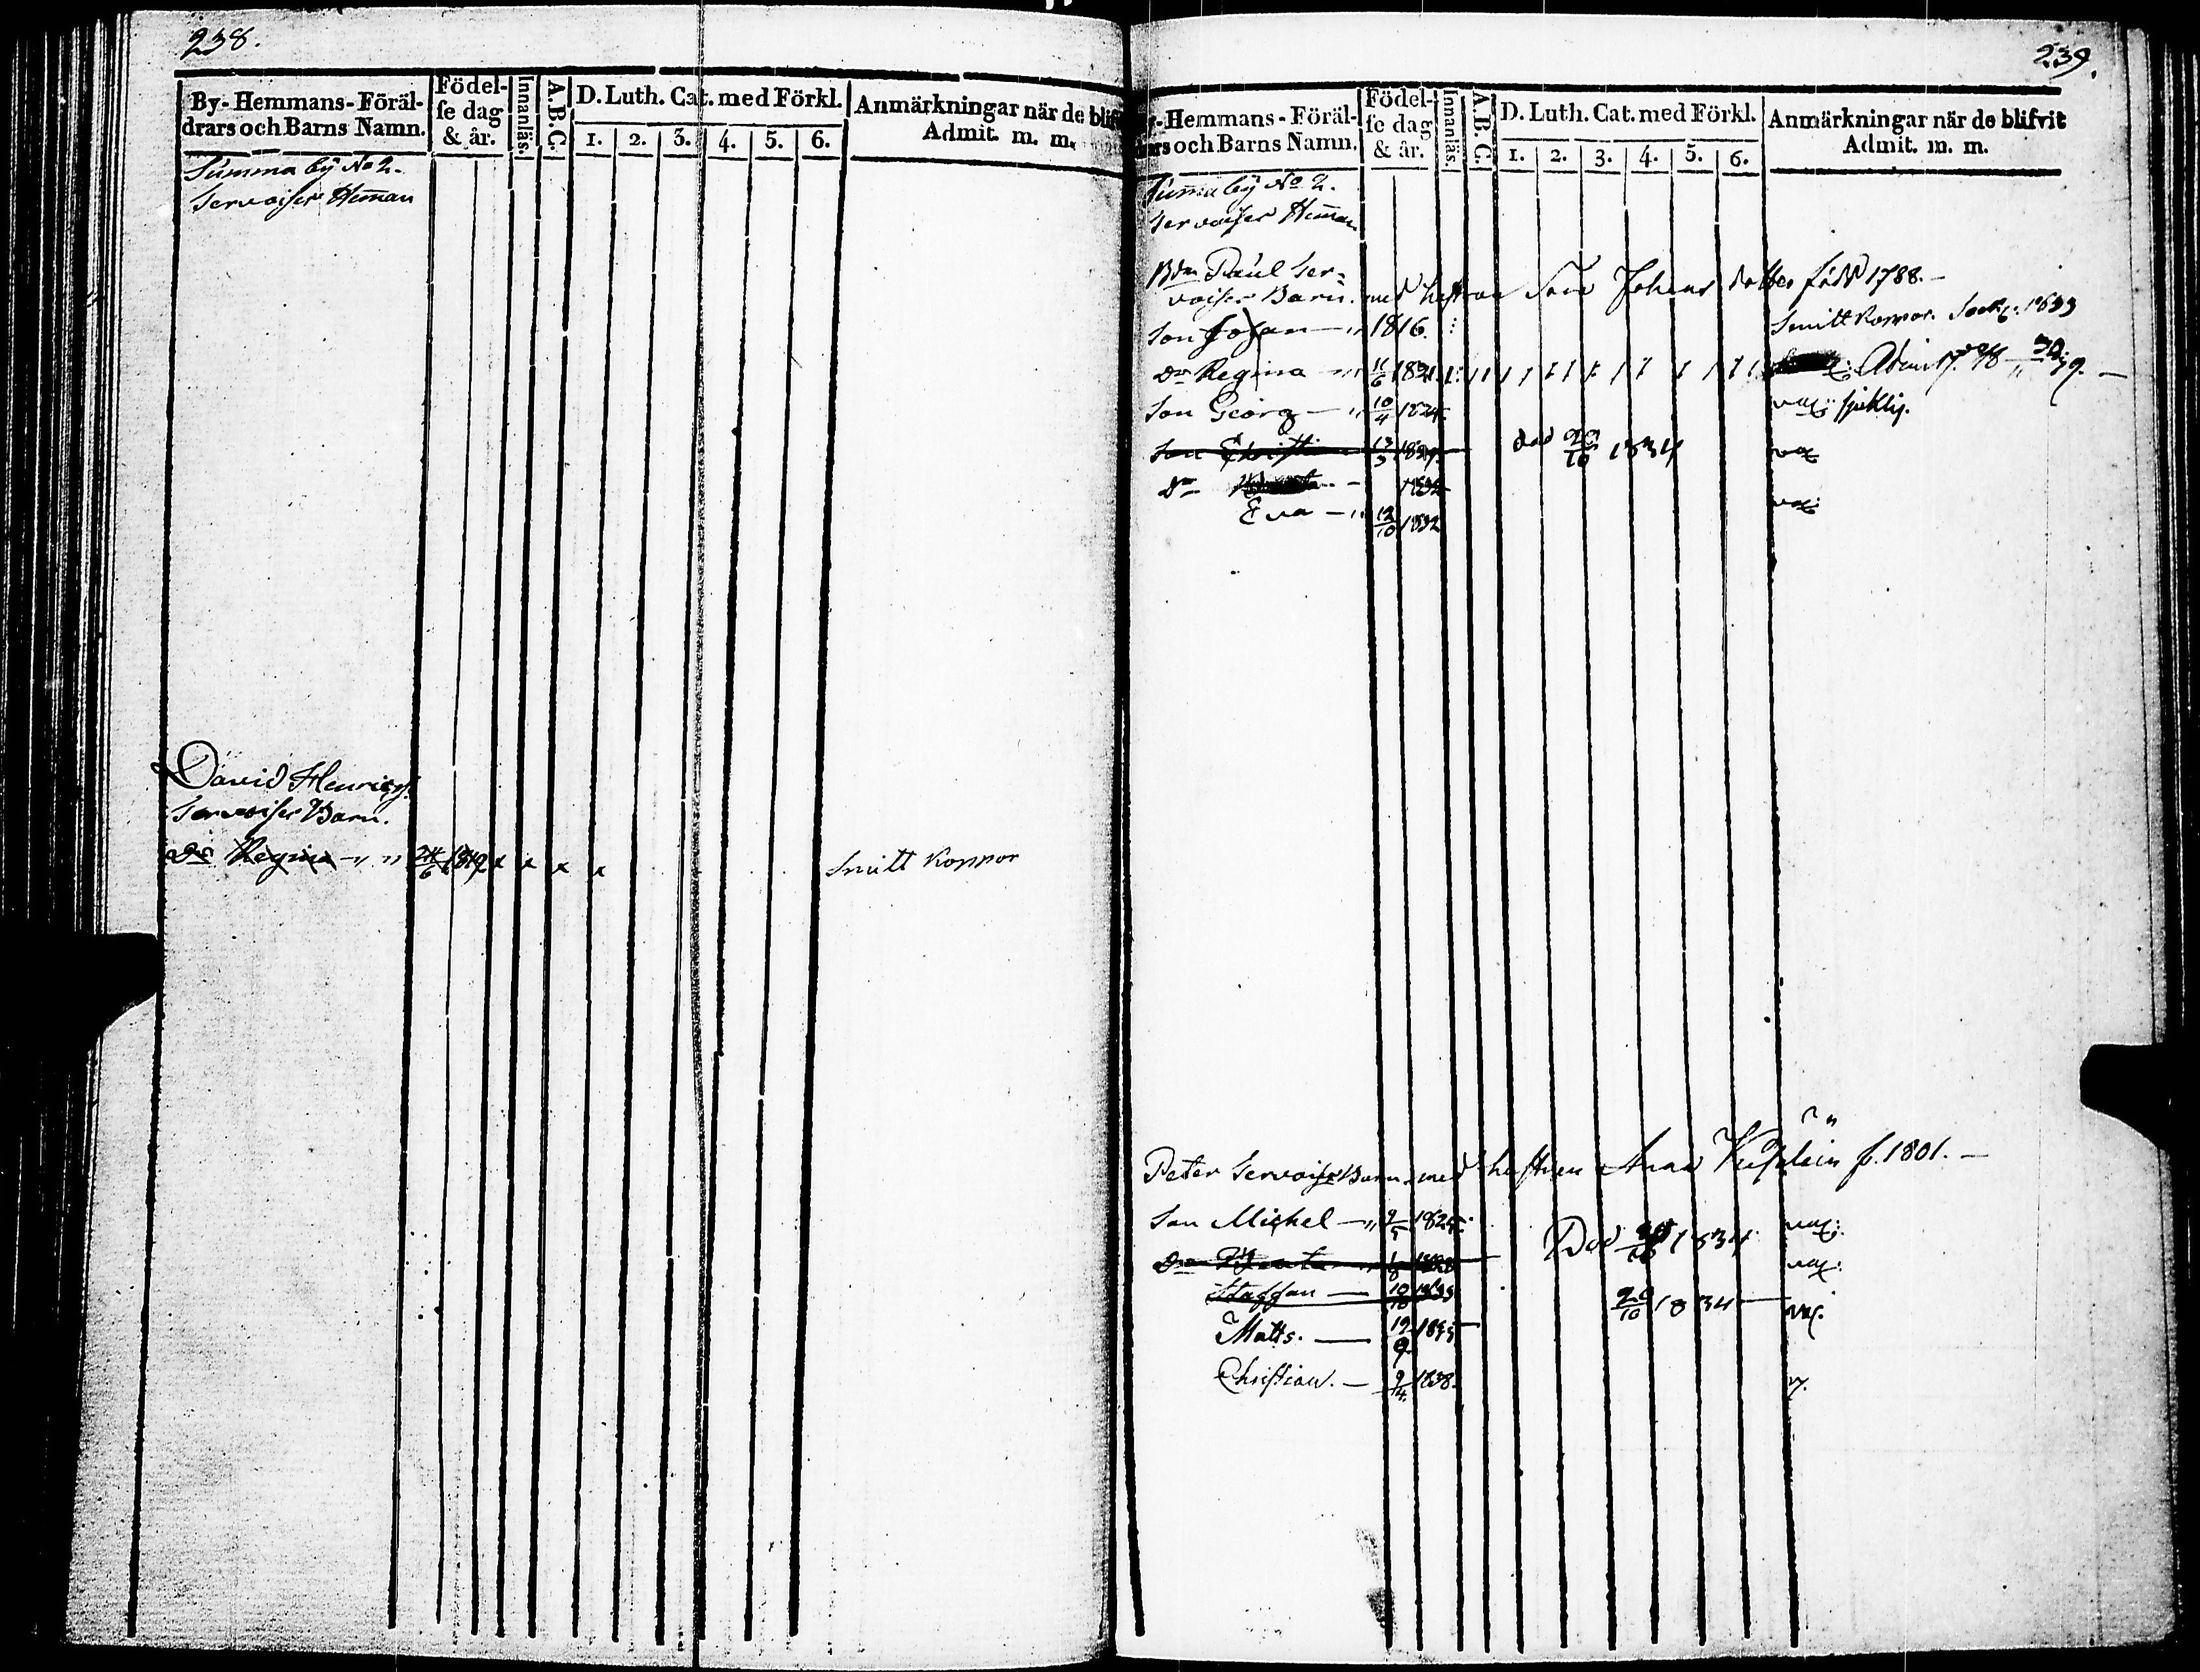 238.
By-Hemmans-Föräl-
drars och Barns Namn.
Födel-
se dag
& år.
Innanläs.
A.B.C.
D. Luth. Cat. med Förkl.
1. 2. 3. 4. 5. 6.
Anmärkningar när de blif
Admit. m. m.
Summa by No 2.
Servoiser Heman
David Henricss.
Servoiser Barn.
Dr Regina 24/6 1819 x x x x Smitt koppor
239.
Hemmans-Föräl-
och Barns Namn.
Födel-
se dag
& år.
Innanläs.
A.B.C.
D. Luth. Cat. med Förkl.
1. 2. 3. 4. 5. 6.
Anmärkningar när de blifvit
Admit. m. m.
Summa by No 2.
Servoiser Heman
Bdn Paul Ser-
voiser Barn. med hustrun Johans dotter född 1788.
Son Johan 1816. Smitt koppor. 1833
Dr Regina 11/6 1821
Son Georg 10/4 1824 vac:
Son Christian 13/3 död 20/10 1834 vac
Dr 1832
Eva 12/10 1832 vac:
Peter Servoiser Barn. med hustrun Anna f. 1801.
Son Michel 9/5 182 vac:
Dr Död 1834 vac:
Staffan 10/10 1833 20/10 1834 vac.
Matts. 19/9 183
Christian. 9/4 1838. v.